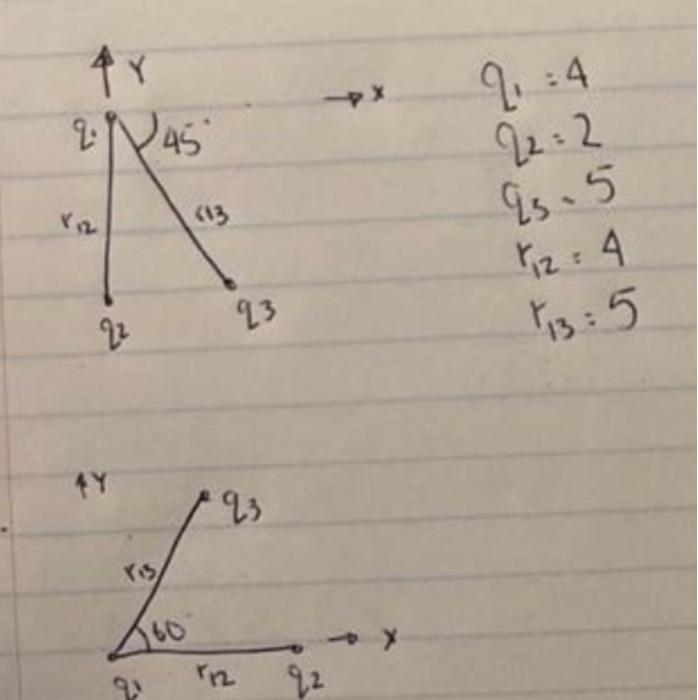 Y
x
q1
45°
r12
r13
q2
q3
q1 = 4
q2 = 2
q3 = 5
r12 = 4
r13 = 5
Y
q3
r13
60
x
q1
r12
q2